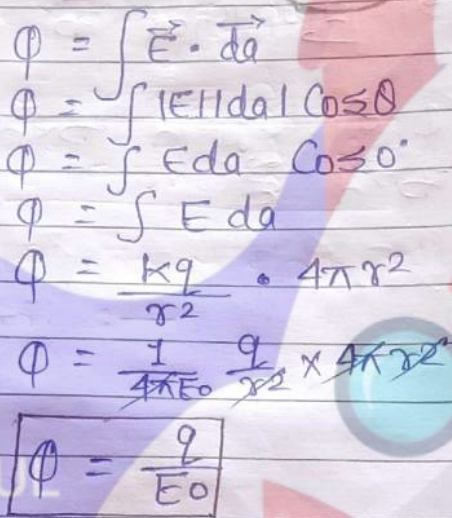 φ = ∫ E⃗ · d⃗a
φ = ∫ |E||da| Cosθ
φ = ∫ Eda Cos0°
φ = ∫ E da
φ = Kq/r2 · 4πr2
φ = 1/4πE0 q/r2 × 4πr2
φ = q/E0